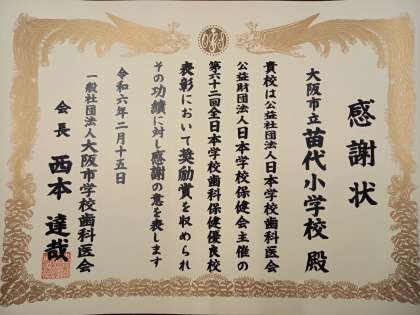 感謝状
大阪市立苗代小学校 殿
貴校は公益社団法人日本学校歯科医会
公益財団法人日本学校保健会主催の
第六十二回全日本学校歯科保健優良校
表彰において奨励賞を収められ
その功績に対し感謝の意を表します
令和六年二月十五日
一般社団法人大阪市学校歯科医会
会長 西本達哉